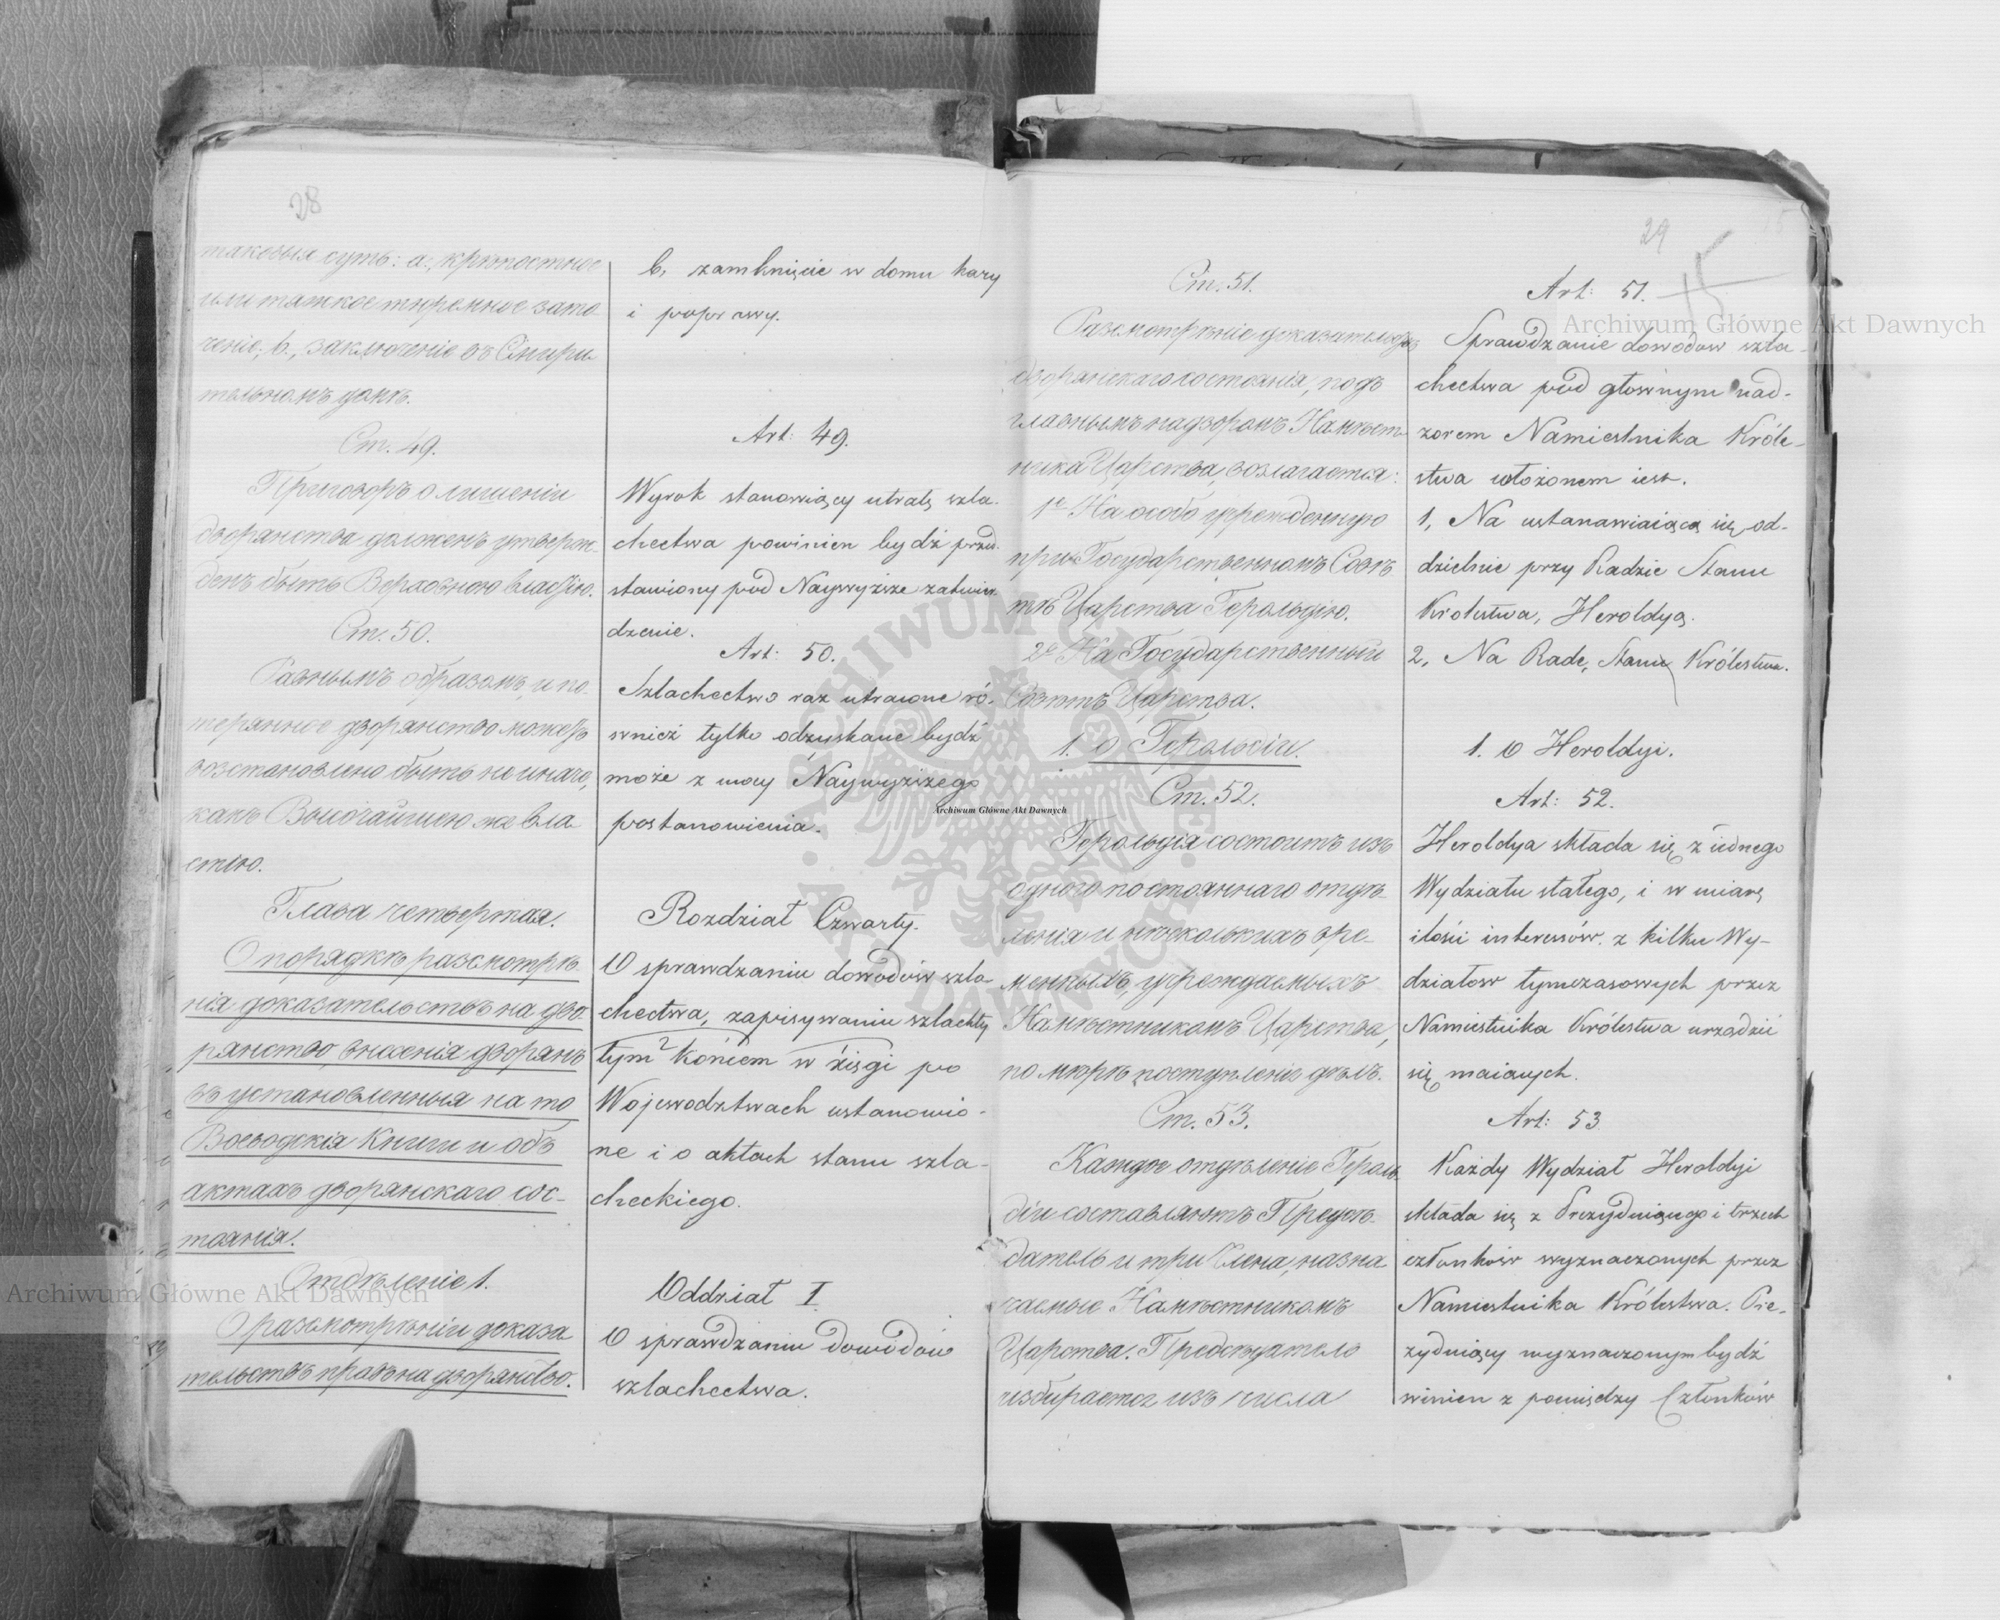 28
таковыя суть: а., крѣпостное
или тяжкое тюремное зато
ченіе; b., заключеніе въ Смири
тельномъ домѣ.
Ст. 49.
Приговоръ о лишеніи
дворянства долженъ утверж-
денъ быть Верховною властію.
Ст. 50.
Равнымъ образомъ, и по
терянное дворянство можетъ
возстановлено быть не иначе,
какъ Высочайшею же вла
стію.
Глава четвертая.
О порядкѣ разсмотрѣ-
нія доказательствъ на дво-
рянство, внесенія дворянъ
въ установленныя на то
Воеводскія Книги и объ
актахъ дворянскаго сос-
тоянія.
Отдѣленіе 1.
О разсмотрѣніи доказа
тельствъ правъ на дворянство.
b, zamknięcie w domu kary
i poprawy.
Art: 49.
Wyrok stanowiący utratę szla-
chectwa powinien bydź przed-
stawiony pod Naywyższe zatwier-
dzenie.
Art: 50.
Szlachectwo raz utracone ró-
wnież tylko odzyskane bydź
może z mocy Naywyższego
postanowienia.
Rozdział Czwarty.
O sprawdzaniu dowodów szla-
chectwa, zapisywaniu szlachty
tym końcem w xięgi po
Wojewodztwach ustanowio-
ne i o aktach stanu szla-
checkiego.
Oddział I.
O sprawdzaniu dowodów
szlachectwa.
29
15
Ст. 51.
Разсмотрѣніе доказательствъ
дворянскаго состоянія, подъ
главнымъ надзоромъ Намѣст-
ника Царства, возлагается:
1е На особо учрежденную
при Государственномъ Совѣ
тѣ Царства Герольдію.
2е На Государственный
Совѣтъ Царства.
1. о Герольдіи.
Ст. 52.
Герольдія состоитъ изъ
одного постояннаго отдѣ-
ленія и нѣсколькихъ вре-
менныхъ, учреждаемыхъ
Намѣстникомъ Царства,
по мѣрѣ поступленія дѣлъ.
Ст. 53.
Каждое отдѣленіе Героль-
діи составляютъ Предсѣ-
датель и три Члена, назна
чаемые Намѣстникомъ
Царства. Предсѣдатель
избирается изъ числа
Art: 51.
Sprawdzanie dowodów szla-
chectwa pod głównym nad-
zorem Namiestnika Króle-
stwa włożonem iest.
1, Na ustanawiaiącą się od-
dzielnie przy Radzie Stanu
Królestwa, Heroldyą.
2, Na Radę, Stanu Królestwa.
1. O Heroldyi.
Art: 52.
Heroldya składa się z iednego
Wydziału stałego, i w miarę
ilości interessów z kilku Wy-
działów tymczasowych przez
Namiestnika Królestwa urządzić
się maiących.
Art: 53
Każdy Wydział Heroldyi
składa się z Prezyduiącego i trzech
członków wyznaczonych przez
Namiestnika Królestwa. Pre-
zyduiący wyznaczonym bydź
winien z pomiędzy Członków
Archiwum Główne Akt Dawnych
Archiwum Główne Akt Dawnych
Archiwum Główne Akt Dawnych
ARCHIWUM GŁÓWNE AKT DAWNYCH